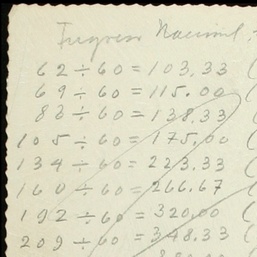 Ingreso Nacional.
62 ÷ 60 = 103.33 (
69 ÷ 60 = 115.00 (
83 ÷ 60 = 138.33
105 ÷ 60 = 175.00 (
134 ÷ 60 = 223.33 (
160 ÷ 60 = 266.67 (
192 ÷ 60 = 320.00 (
209 ÷ 60 = 348.33 (